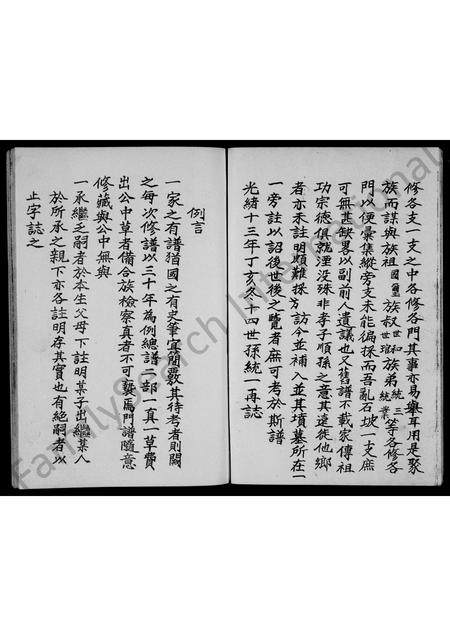 修各支一支之中各修各門其事亦易舉耳用是聚
族而謀與族祖國璽族叔世和世瑠族弟統三統業等各修各
門以便彙集縱旁支未能徧採而吾亂石坡一支庶
可無甚缺畧以副前人遺議也又舊譜不載家傳祖
功宗德俱就湮沒殊非孝子順孫之意其遷徙他鄉
者亦未註明頗難採訪今並補入並其墳墓所在一
一旁註以詔後世後之覽者庶可考於斯譜
光緒十三年丁亥八十四世孫統一再誌
例言
一家之有譜猶國之有史筆宜簡覈其待考者則闕
之每次修譜以三十年為例總譜二部一真一草費
出公中草者備合族檢察真者不可褻焉門譜隨意
修藏與公中無與
一承繼乏嗣者於本生父母下註明某子出繼某人
於所承之親下亦各註明存其實也有絕嗣者以
止字誌之
FamilySearch International